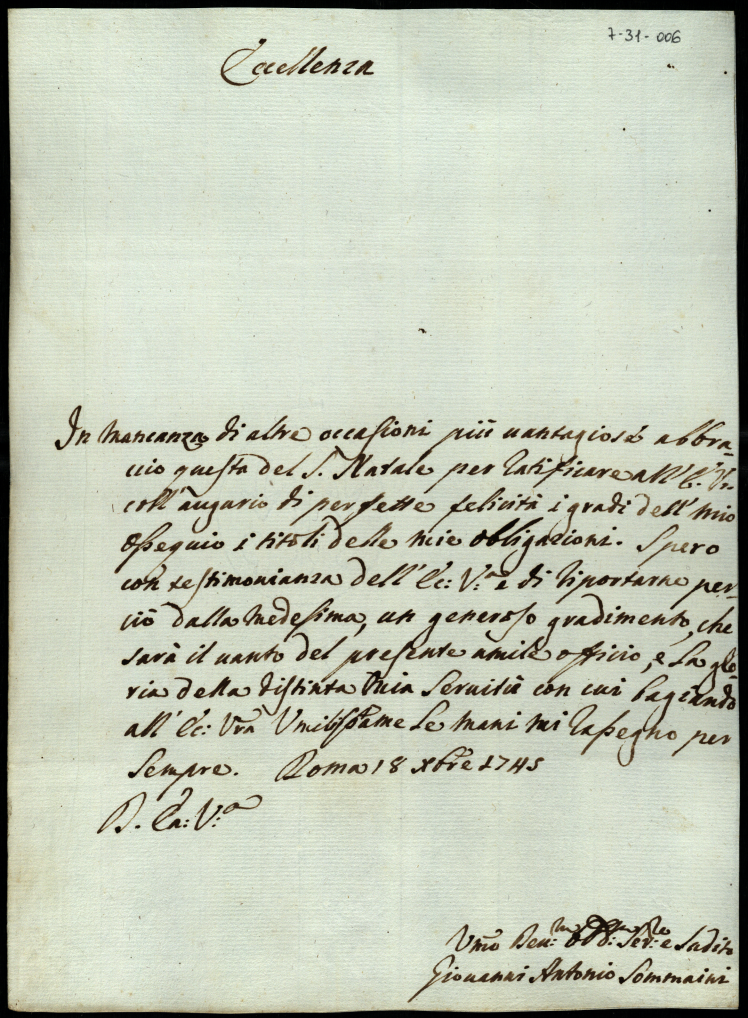 7-31-006
Eccellenza
In mancanza di altre occasioni più uantagiose abbra-
ccio questa del S. Natale per ratificare all' E. Vr.
coll' augurio di perfette felicità i gradi dell' mio
ossequio i titoli delle mie obligazioni. Spero
con testimonianza dell' Ec: V.ª e di riportarne per-
ciò dalla medesima, un generoso gradimento, che
sarà il uanto del presente umile officio, e la glo-
ria della distinta mia seruitù con cui bagiando
all' Ec: Vra Umilissmame le mani mi rassegno per
sempre. Roma 18 Xbre 1745
D. Ec: V.ª
Umo Deu:mo Obb:mo Ser:re e Sudito
Giouanni Antonio Sommaini